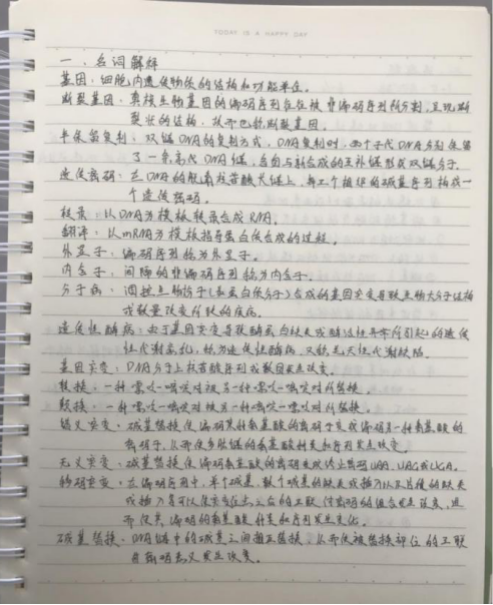 TODAY IS A HAPPY DAY
一、名词解释
基因：细胞内遗传物质的结构和功能单位。
断裂基因：真核生物基因的编码序列往往被非编码序列所分割，呈现断
裂状的结构，故而也称断裂基因。
半保留复制：双链DNA的复制方式，DNA复制时，两个子代DNA分别保留
了一条亲代DNA链，各自与新合成的互补链形成双链分子。
遗传密码：在DNA的脱氧核苷酸长链上，每三个相邻的碱基序列构成一
个遗传密码。
转录：以DNA为模板转录合成RNA。
翻译：以mRNA为模板指导蛋白质合成的过程。
外显子：编码序列称为外显子。
内含子：间隔的非编码序列称为内含子。
分子病：调控生物大分子(如蛋白质分子)合成的基因突变导致生物大分子结构
或数量改变所致的疾病。
遗传性酶病：由于基因突变导致酶蛋白缺失或酶活性异常所引起的遗传
性代谢紊乱，称为遗传性酶病，又称先天性代谢缺陷。
基因突变：DNA分子上核苷酸序列或数目发生改变。
转换：一种嘌呤-嘧啶对被另一种嘌呤-嘧啶对所替换。
颠换：一种嘌呤-嘧啶对被另一种嘧啶-嘌呤对所替换。
错义突变：碱基替换使编码某种氨基酸的密码子变成编码另一种氨基酸的
密码子，从而使多肽链的氨基酸种类和序列发生改变。
无义突变：碱基替换使编码氨基酸的密码变成终止密码UAA、UAG或UGA。
移码突变：在编码序列中，单个碱基、数个碱基的缺失或插入以及片段的缺失
或插入等可以使突变位点之后的三联体密码的组合发生改变，进
而使其编码的氨基酸种类和序列发生变化。
碱基替换：DNA链中的碱基之间互相替换，从而使被替换部位的三联
体密码意义发生改变。